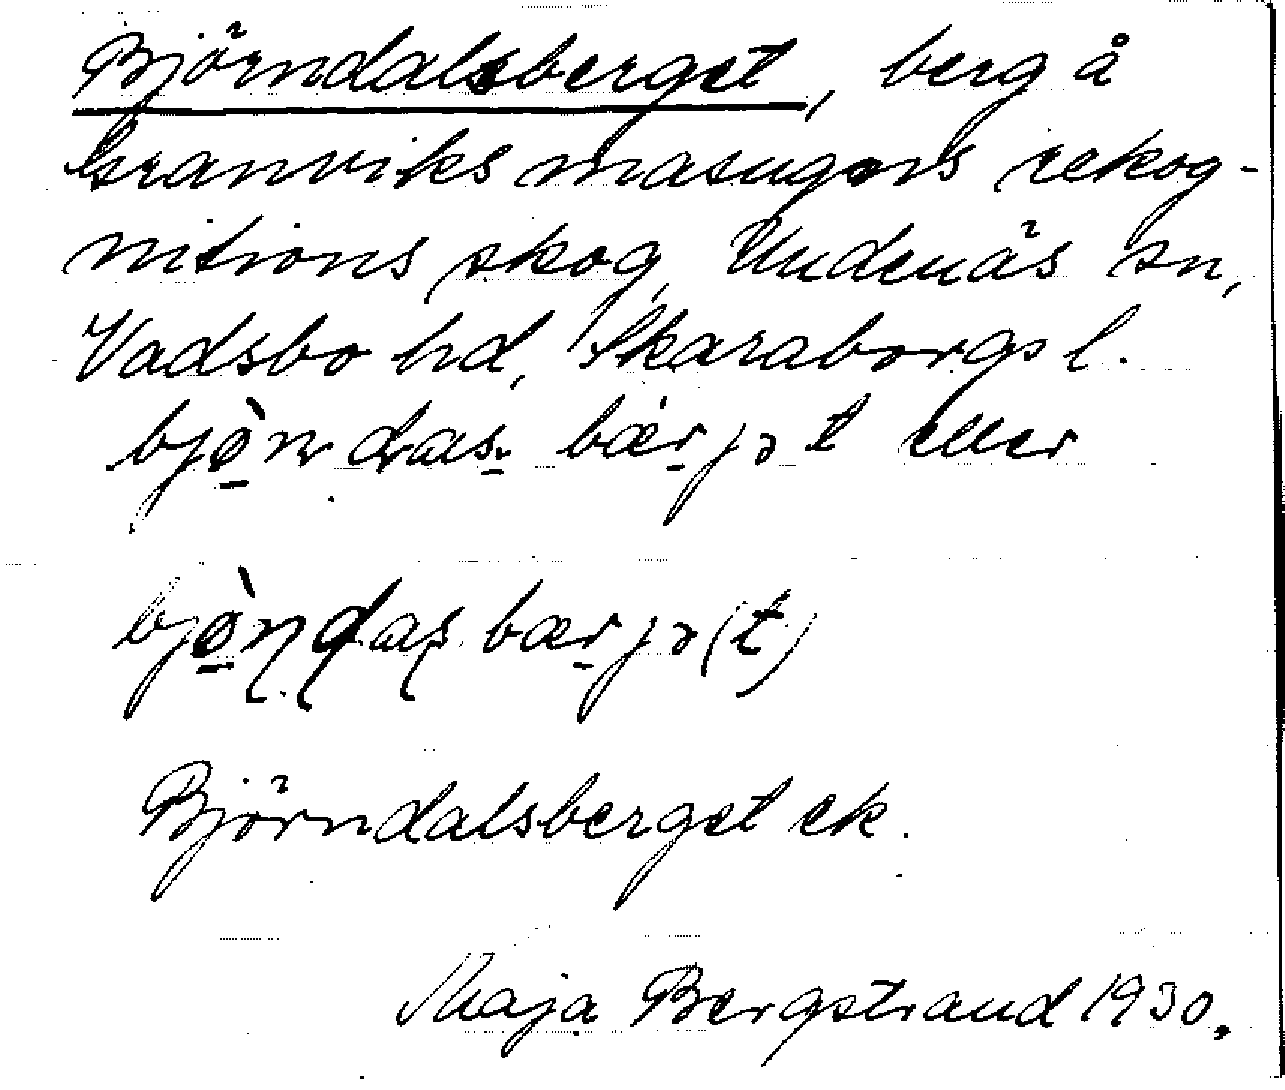 Björndalsberget, berg å
Granviks masugns rekog-
nitions skog, Undenäs sn,
Vadsbo hd, Skaraborgs l.
bjø̠̀ndas bær̠jət eller
bjø̠̀ɳɖaʂ bær̠jə(t)
Björndalsberget ek.
Maja Bergstrand 1930.